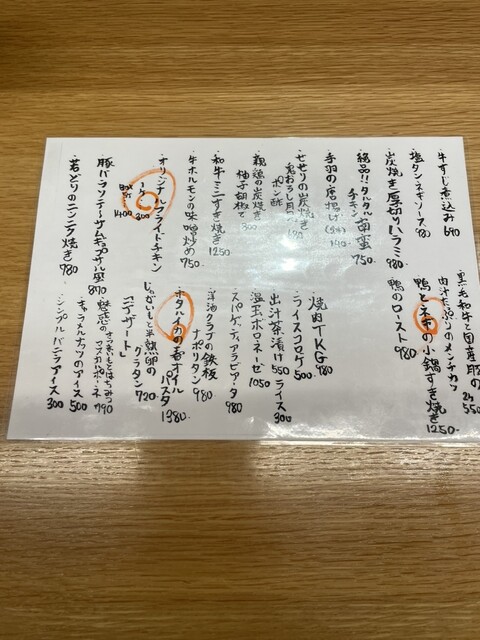 牛すじ煮込み 690
塩タン ネギソース 980
炭焼き厚切りハラミ 980
絶品!!タルタル
チキン南蛮 750
手羽の唐揚げ(2本) 190
せせりの炭焼き
鬼おろし
ポン酢
親鶏の炭焼き
柚子胡椒で 300
和牛ミニすき焼き 1250
牛ホルモンの味噌炒め 750
オリジナルフライドチキン
1ピース 300
BOX 1400
豚バラソテー サムギョプサル風 870
若どりのニンニク焼き 780
黒毛和牛と国産豚の
肉汁たっぷりのメンチカツ 2ヶ 550
鴨とネギの小鍋すき焼き 1250
鴨のロースト 980
焼肉TKG 980
ライスコロッケ 500
出汁茶漬け 550 ライス 300
温玉ボロネーゼ 1050
スパゲッティアラビアータ 980
洋酒クラブの鉄板
ナポリタン 980
ホタルイカの香オイル
パスタ 1380
じゃがいもと半熟卵の
グラタン 720
「デザート」
魅惑の
さつまいもとはちみつ
マスカルポーネ 790
キャラメルナッツのアイス 500
シンプルバニラアイス 300